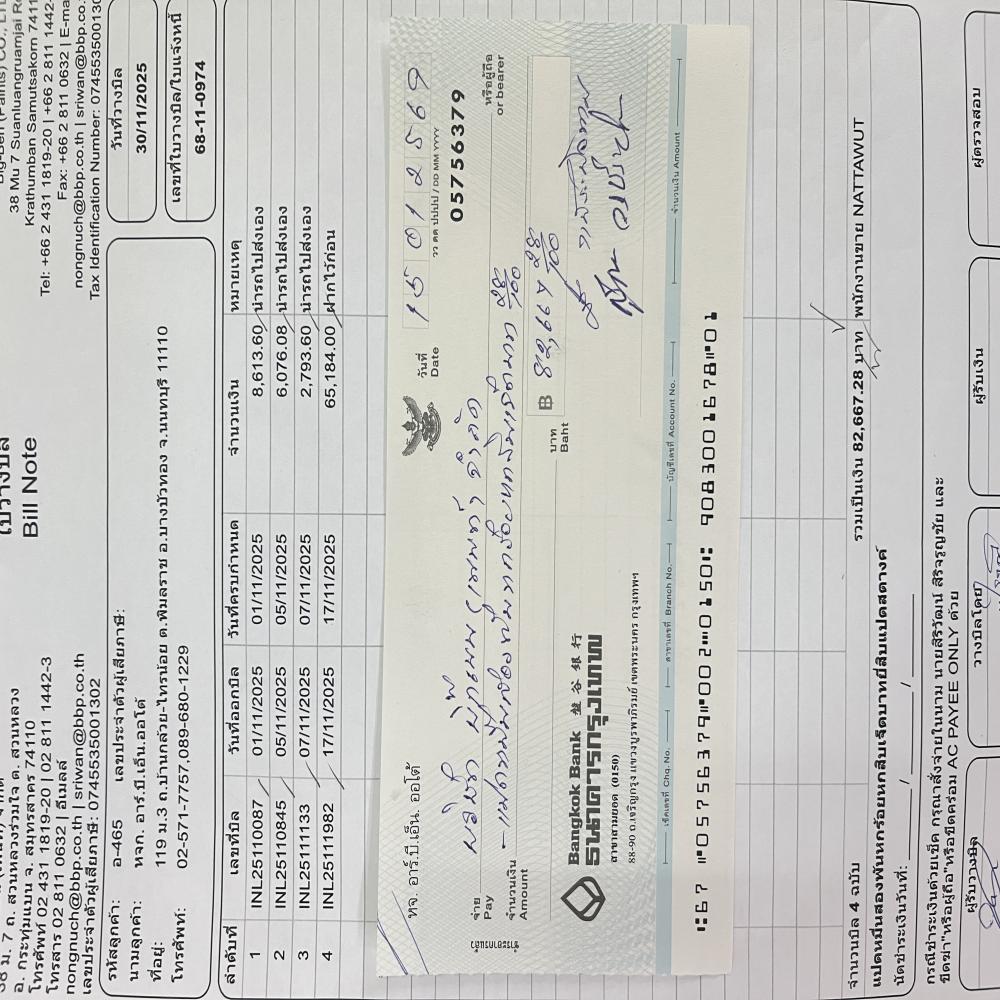 Big-Ben (Paints) CO., LTD
38 Mu 7 Suanluangruamjai
Krathumban Samutsakorn 7411
Tel: +66 2 431 1819-20 | +66 2 811 1442-
Fax: +66 2 811 0632 | E-ma
nongnuch@bbp.co.th | sriwan@bbp.co.
Tax Identification Number: 0745535001302
38 ม. 7 ถ. สวนหลวงร่วมใจ ต. สวนหลวง
อ. กระทุ่มแบน จ. สมุทรสาคร 74110
โทรศัพท์ 02 431 1819-20 | 02 811 1442-3
โทรสาร 02 811 0632 | อีเมลล์
nongnuch@bbp.co.th | sriwan@bbp.co.th
เลขประจำตัวผู้เสียภาษี: 0745535001302
ใบวางบิล
Bill Note
วันที่วางบิล
30/11/2025
เลขที่ใบวางบิล/ใบแจ้งหนี้
68-11-0974
รหัสลูกค้า: อ-465 เลขประจำตัวผู้เสียภาษี:
นามลูกค้า: หจก. อาร์.บี.เอ็น.ออโต้
ที่อยู่: 119 ม.3 ถ.บ้านกล้วย-ไทรน้อย ต.พิมลราช อ.บางบัวทอง จ.นนทบุรี 11110
โทรศัพท์: 02-571-7757,089-680-1229
ลำดับที่ เลขที่บิล วันที่ออกบิล วันที่ครบกำหนด จำนวนเงิน หมายเหตุ
1 INL25110087 01/11/2025 01/11/2025 8,613.60 นำรถไปส่งเอง
2 INL25110845 05/11/2025 05/11/2025 6,076.08 นำรถไปส่งเอง
3 INL25111133 07/11/2025 07/11/2025 2,793.60 นำรถไปส่งเอง
4 INL25111982 17/11/2025 17/11/2025 65,184.00 ฝากไว้ก่อน
หจ. อาร์.บี.เอ็น. ออโต้
วันที่
Date
15 01 2569
วว ดด ปปปป / DD MM YYYY
05756379
จ่าย
Pay
หรือผู้ถือ
or bearer
จำนวนเงิน
Amount
แปดหมื่นสองพันหกร้อยหกสิบเจ็ดบาท 28/100
บาท
Baht
฿ 82,667 28/100
Bangkok Bank 盤谷銀行
ธนาคารกรุงเทพ
สาขาสามยอด (0150)
88-90 ถ.เจริญกรุง แขวงบูรพาภิรมย์ เขตพระนคร กรุงเทพฯ
เช็คเลขที่ Chq. No. สาขาเลขที่ Branch No. บัญชีเลขที่ Account No. จำนวนเงิน Amount
⑆67 ⑈05756379⑈002⑉0150⑆ 9083001678⑈01
จำนวนบิล 4 ฉบับ รวมเป็นเงิน 82,667.28 บาท พนักงานขาย NATTAWUT
แปดหมื่นสองพันหกร้อยหกสิบเจ็ดบาทยี่สิบแปดสตางค์
นัดชำระเงินวันที่: / /
กรณีชำระเงินด้วยเช็ค กรุณาสั่งจ่ายในนาม นายสิริวัฒน์ สิริจรูญชัย และ
ขีดฆ่า"หรือผู้ถือ"หรือขีดคร่อม AC PAYEE ONLY ด้วย
ผู้รับวางบิล วางบิลโดย ผู้รับเงิน ผู้ตรวจสอบ